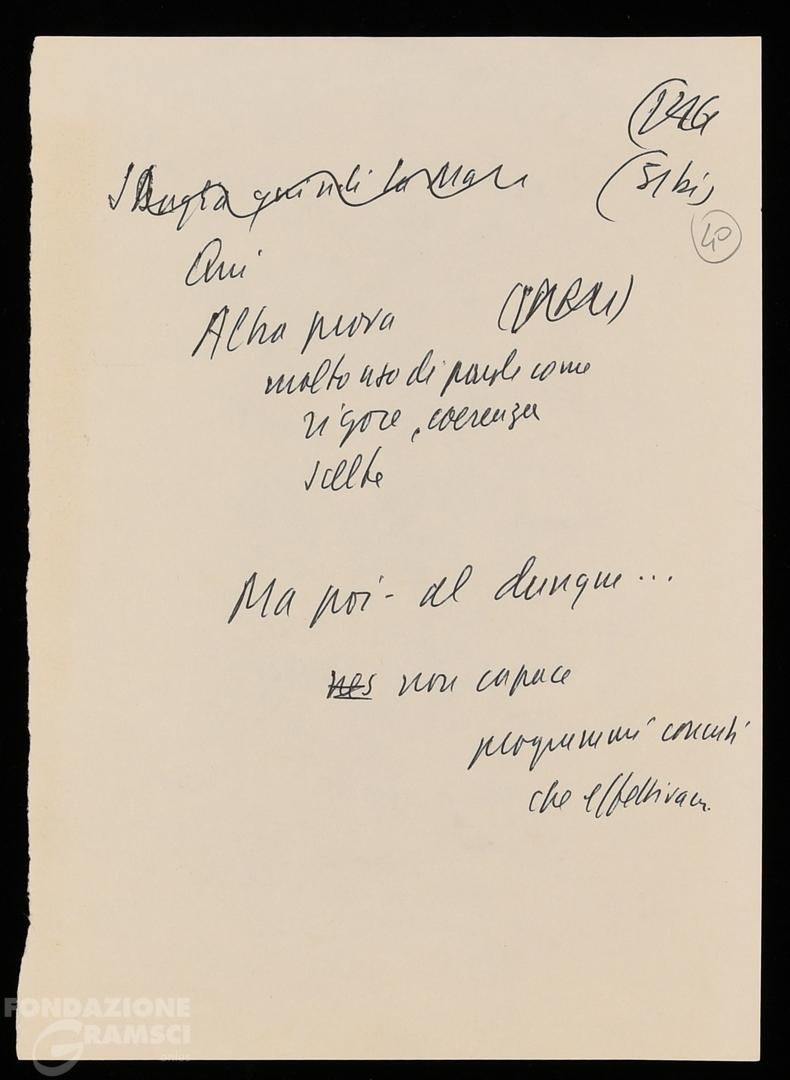 (51 bis)
40
Qui
Altra prova
molto uso di parole come
rigore, coerenza
scelte
Ma poi - al dunque...
non capace
programmi concreti
che effettivam.
FONDAZIONE
GRAMSCI
onlus